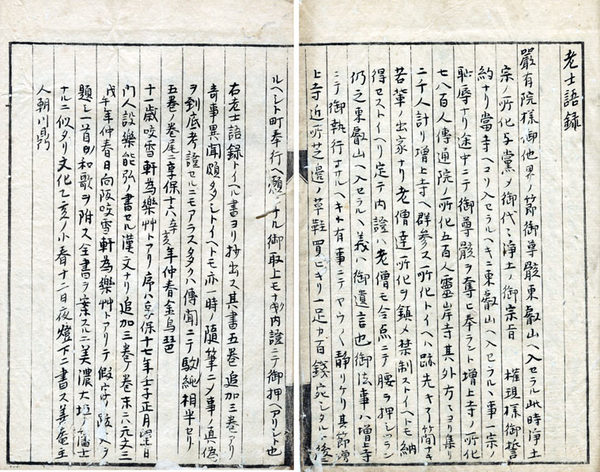 老士語録
嚴有院様御他界ノ節御尊骸東叡山ヘ入セラル此時浄土
宗ノ所化与黨メ御代々浄土ノ御宗旨　権現様御誓
約ナリ當寺ヘコソ入セラルヘキニ東叡山ヘ入セラルヽ事一宗ノ
恥辱ナリ途中ニテ御尊骸ヲ奪ヒ奉ラント増上寺ノ所化
七八百人傳通院ノ所化五百人霊岸寺其外方々ヨリ集リ
二千人計リ増上寺ヘ群参ス所化トイヘハ跡先キナシノ
若輩ノ出家ナリ老僧達所化ヲ鎮メ禁制ストイヘトモ納
得セストイヘリ定テ内證ハ老僧モ合点ニテ腰ヲ押シツラン
仍之東叡山ヘ入セラルヽ義ハ御遺言也御法事ハ増上寺
ニテ御執行ナサルヘキト有事ニテヤウヤク静リケリ其節増
上寺近所芝邊ノ草鞋買ヒキリ一足カ百錢宛シタル
ルヘント町奉行ヘ願ニナル御取上モナク内證ニテ御押ヘアリシト也
右老士語録トイヘル書ヨリ抄出ス其書五巻追加三巻アリ
奇事異聞頗多シトイヘトモ亦一時ノ随筆ニノ事ノ真偽
ヲ到底考證セルニモアラスタヽ傳聞ニテ駁純相半セリ
五巻ノ巻尾ニ享保十八辛亥年仲春金烏
十一歳咬雪軒為樂艸トアリ序ハ享保十七年壬子正月望日
門人設樂能弘ノ書セル漢文ナリ追加三巻ノ巻末ニハ元文三
戊午年仲春日向阪咬雪軒為樂艸トアリテ假字ノ跋
題シ一首ノ和歌ヲ附ス全書ヲ案スルニ美濃大垣ノ藩士
ナルニ似タリ文化乙亥ノ小春十二日夜燈下ニ書ス善庵主
人朝川鼎